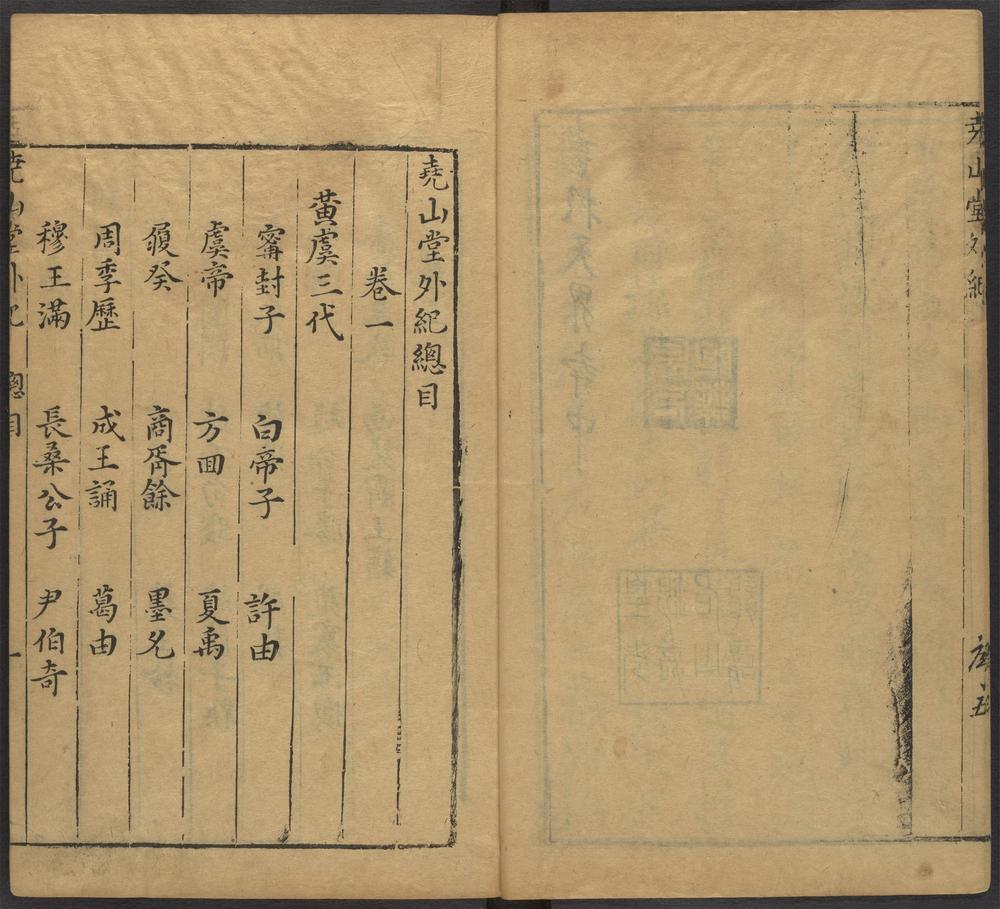 堯山堂外紀
序 五
堯山堂外紀總目
卷一
黃虞三代
甯封子 白帝子 許由
虞帝 方回 夏禹
履癸 商胥餘 墨允
周季歷 成王誦 葛由
穆王滿 長桑公子 尹伯奇
堯山堂外紀 總目 一